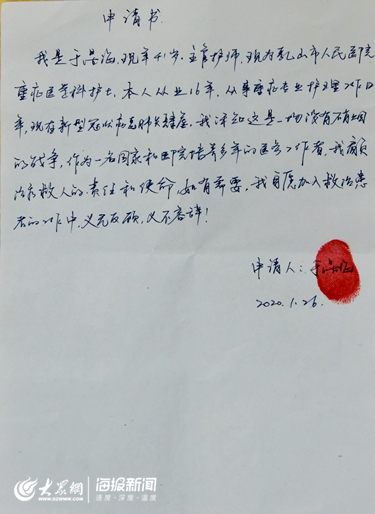 申请书
我是于 海,现年41岁,主管护师,现为乳山市人民医院
重症医学科护士,本人从业16年,从事重症专业护理工作10
年,现有新型冠状病毒肺炎肆虐,我深知这是一场没有硝烟
的战争,作为一名国家和医院培养多年的医务工作者,我肩负
治病救人的责任和使命,如有需要,我自愿加入救治患
者的工作中,义无反顾,义不容辞!
申请人:于 海
2020.1.26.
大众网
WWW.DZWWW.COM
海报新闻
速度·深度·温度